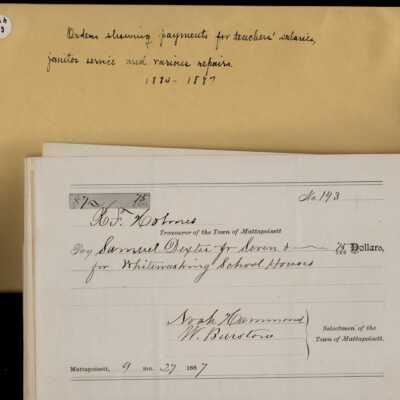 Orders showing payments for teachers' salaries,
janitor service and various repairs.
1884-1887
No 193
R.F. Holmes
Treasurer of the Town of Mattapoisett
Pay Samuel Dexter Jr Seven & 75/100 Dollars,
for Whitewashing School Houses
Noah Hammond
W. Barstow
Selectmen of the
Town of Mattapoisett.
Mattapoisett, 9 mo. 27 1887